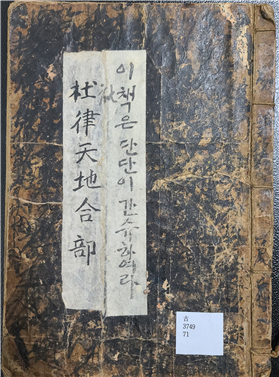 이 책은 단단이 간슈하여라
杜律天地合部
古
3749
71